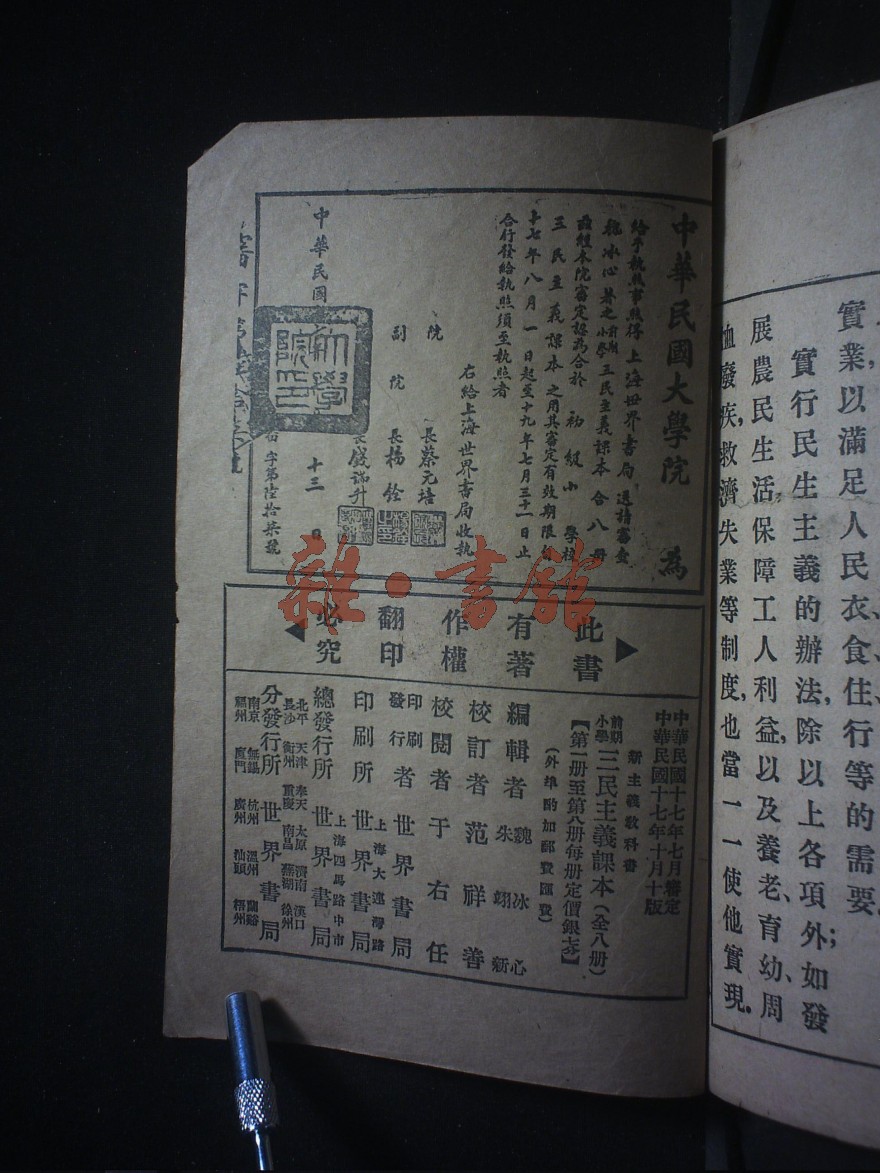 實業,以滿足人民衣食住行等的需要。
實行民生主義的辦法,除以上各項外;如發
展農民生活,保障工人利益,以及養老、育幼、周
卹廢疾,救濟失業等制度,也當一一使他實現。
中華民國大學院 為
給予執照事照得 上海世界書局 送請審查
魏冰心 著之 前期小學 三民主義課本 合八册
函經本院審定認為合於 初級小 學校
三民主義課本 之用其審定有效期限自
十七年八月一日起至十九年七月三十一日止
合行發給執照須至執照者
右給上海世界書局收執
院 長蔡元培
副院 長楊銓
長錢端升
中華民國 十三 日
字第陸拾柒號
大學院印
雜·書館
此書有著作權翻印必究
中華民國十七年七月審定
中華民國十七年十月十版
新主義教科書
前期小學 三民主義課本(全八册)
【第一册至第八册每册定價銀】
(外埠酌加郵費匯費)
編輯者 魏冰心 朱翊新
校訂者 范祥善
校閱者 于右任
印刷發行者 世界書局
印刷所 上海大連灣路 世界書局
總發行所 上海四馬路中市 世界書局
分發行所 世界書局
北平 天津 奉天 太原 濟南 漢口
長沙 衡州 重慶 南昌 蕪湖 徐州
南京 無錫 杭州 溫州 蘭谿
福州 廈門 廣州 汕頭 梧州